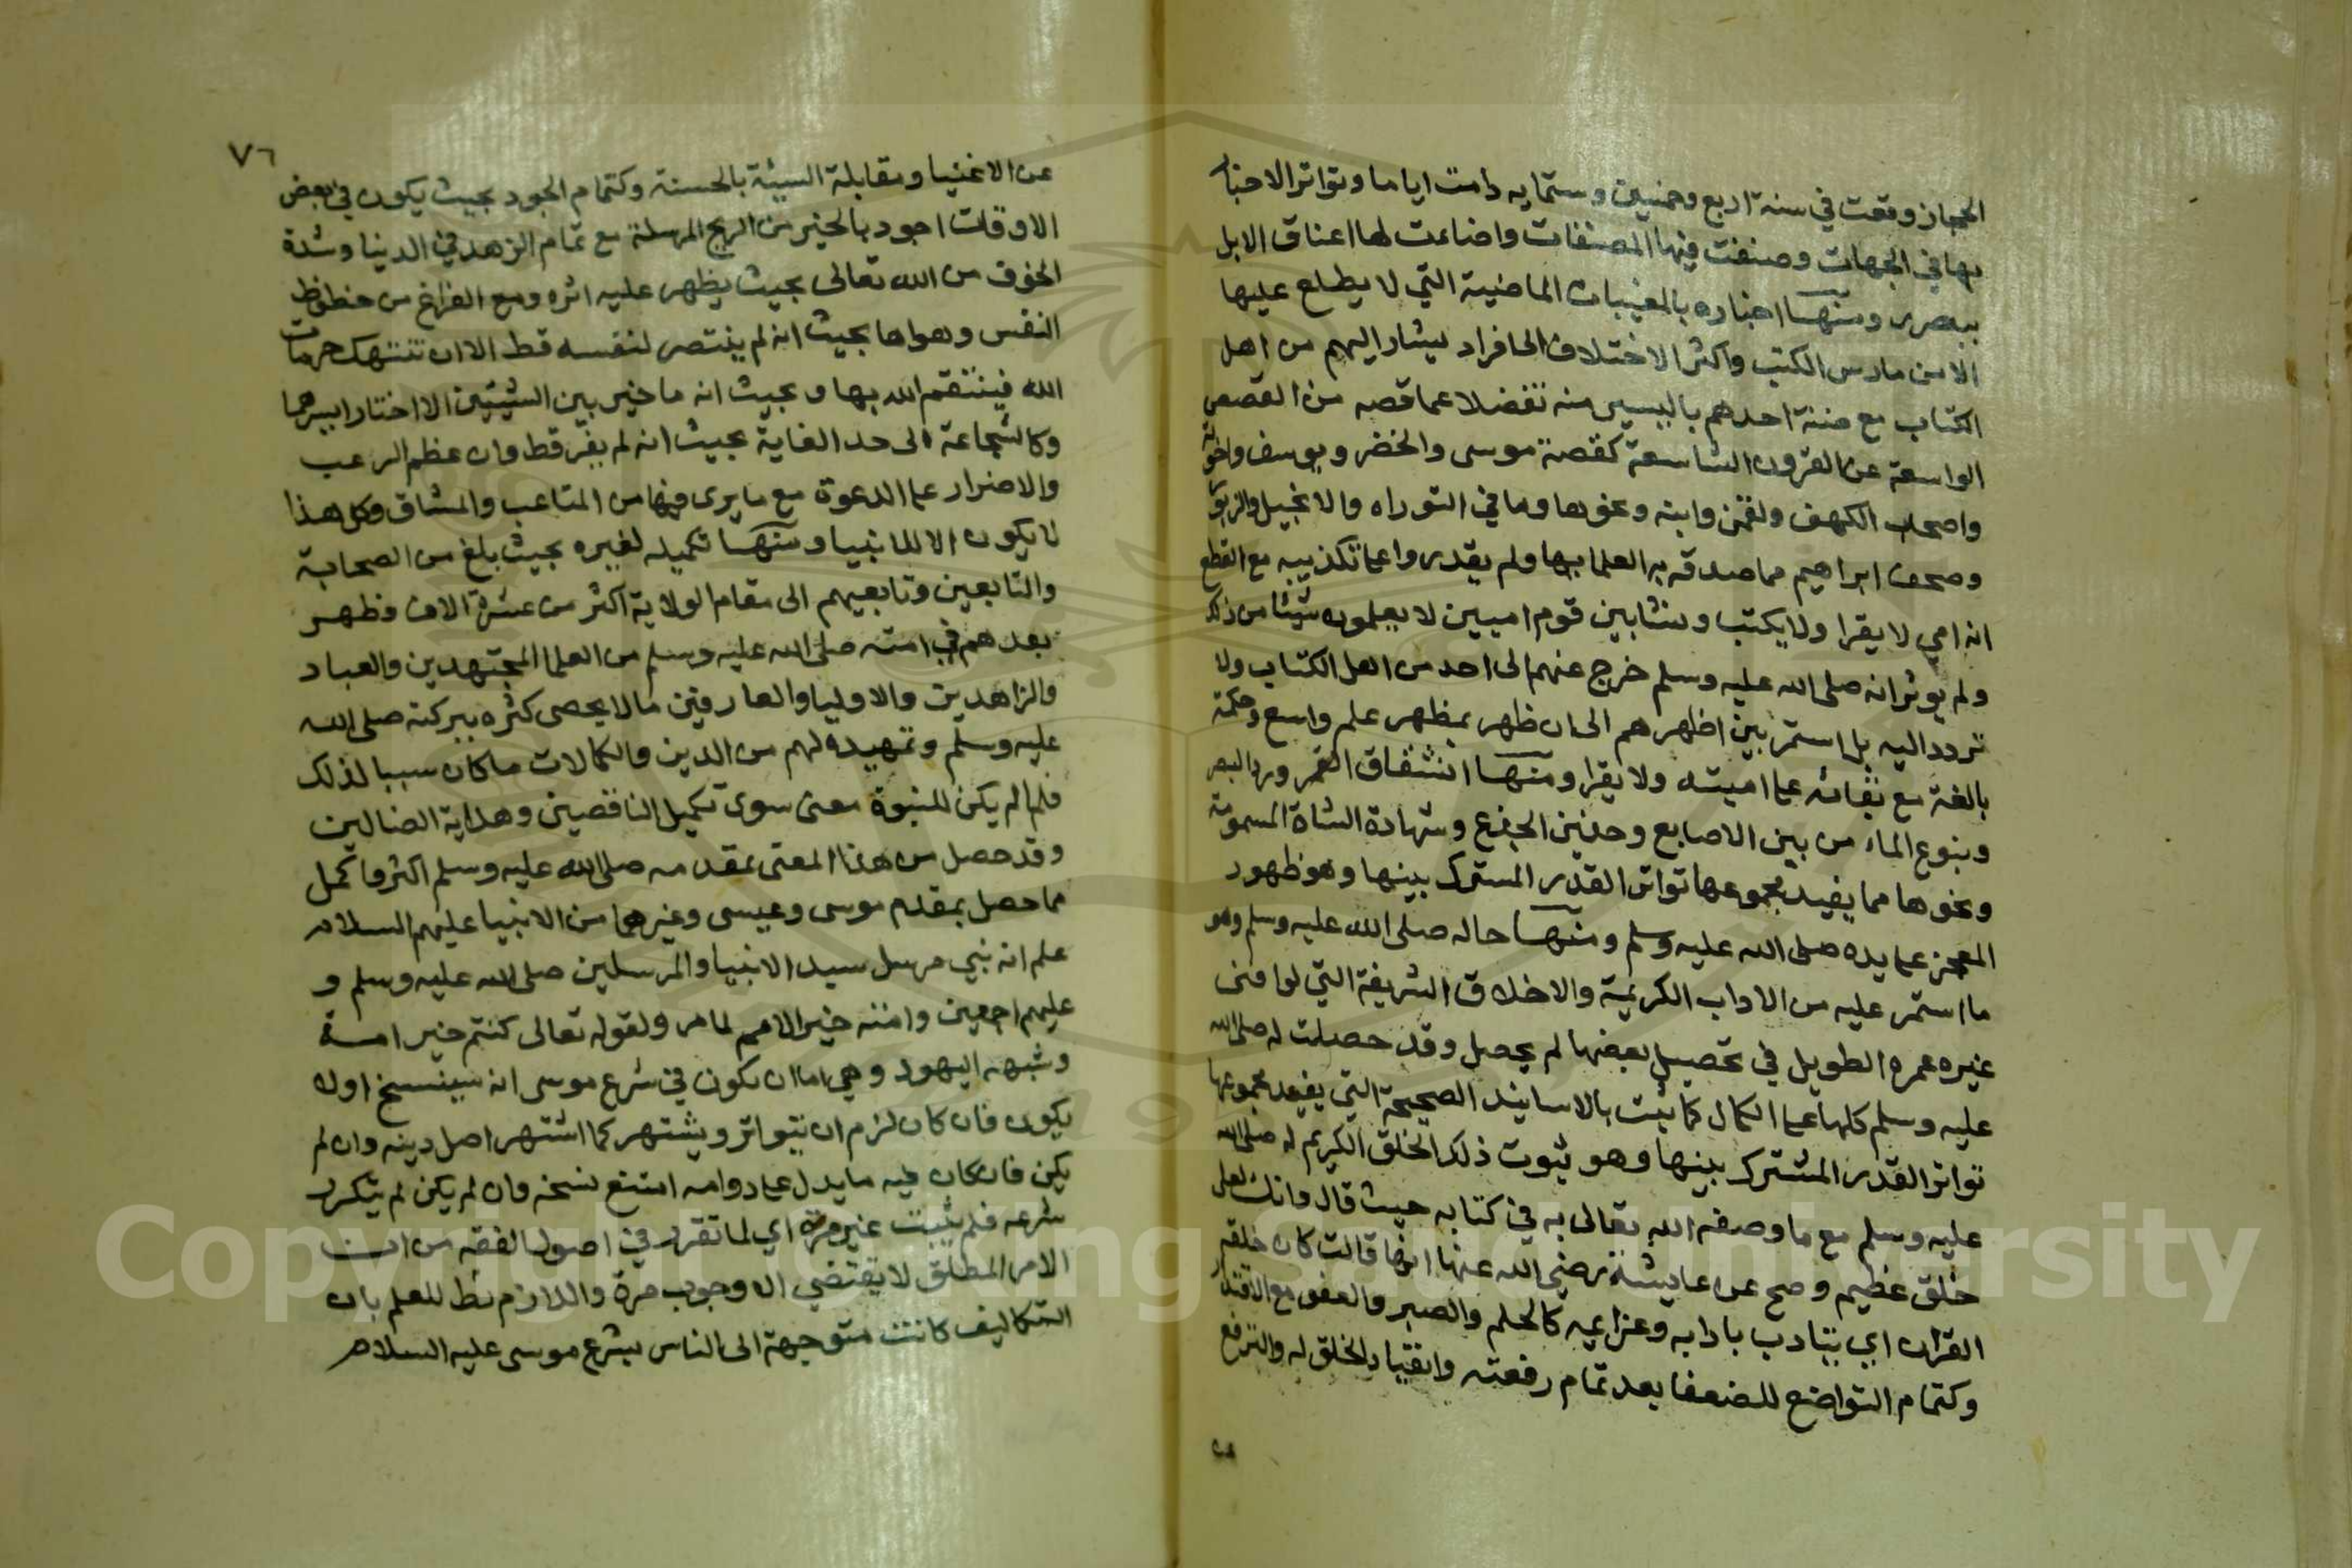 الحجاز وقعت في سنة اربع وخمسين وستمايه دامت اياما وتواتر الاخبار
بها في الجهات وصنفت فيها المصنفات واضاءت لها اعناق الابل
ببصرى ومنها اخباره بالمغيبات الماضية التي لا يطلع عليها
الا من مارس الكتب واكثر الاختلاف الى افراد يشار اليهم من اهل
الكتاب مع ضنة احدهم باليسير منه تفضلا عما قصه من القصص
الواسعة عن القرون الشاسعة كقصة موسى والخضر ويوسف واخوته
واصحاب الكهف ولقمن وابنه ونحوها وما في التوراه والانجيل والزبور
وصحف ابراهيم مما صدقه به العلما بها ولم يقدروا على تكذيبه مع القطع
انه امي لا يقرا ولا يكتب ونشا بين قوم اميين لا يعلمون شيئا من ذلك
ولم يوثر انه صلى الله عليه وسلم خرج عنهم الى احد من اهل الكتاب ولا
تردد اليه بل استمر بين اظهرهم الى ان ظهر بمظهر علم واسع وحكمة
بالغة مع بقائه على اميته ولا يقرا ومنها انشقاق القمر ورد البصر
وينبوع الماء من بين الاصابع وحنين الجذع وشهادة الشاة المسمومة
ونحوها مما يفيد مجموعها تواتر القدر المشترك بينها وهو ظهور
المعجز على يده صلى الله عليه وسلم ومنها حاله صلى الله عليه وسلم وهو
ما استمر عليه من الاداب الكريمة والاخلاق الشريفة التي لو افنى
غيره عمره الطويل في تحصيل بعضها لم يحصل وقد حصلت له صلى الله
عليه وسلم كلها على الكمال كما ثبت بالاسانيد الصحيحة التي يفيد مجموعها
تواتر القدر المشترك بينها وهو ثبوت ذلك الخلق الكريم له صلى الله
عليه وسلم مع ما وصفه الله تعالى به في كتابه حيث قال وانك لعلى
خلق عظيم وصح عن عايشة رضي الله عنها انها قالت كان خلقه
القران اي يتادب بادابه وعزايمه كالحلم والصبر والعفو مع الاقتدار
وكتمام التواضع للضعفا بعد تمام رفعته وانقياد الخلق له والترفع
عن
٧٦
عن الاغنيا ومقابلة السيئة بالحسنة وكتمام الجود بحيث يكون في بعض
الاوقات اجود بالخير من الريح المرسلة مع تمام الزهد في الدنيا وشدة
الخوف من الله تعالى بحيث يظهر عليه اثره ومع الفراغ من حظوظ
النفس وهواها بحيث انه لم ينتصر لنفسه قط الا ان تنتهك حرمات
الله فينتقم لله بها وبحيث انه ما خير بين الشيئين الا اختار ايسرهما
وكالشجاعة الى حد الغاية بحيث انه لم يفر قط وان عظم الرعب
والاضرار على الدعوة مع ما يرى فيها من المتاعب والمشاق وكل هذا
لا يكون الا للانبيا ومنها تكميله لغيره بحيث بلغ من الصحابة
والتابعين وتابعيهم الى مقام الولاية اكثر من عشرة الاف وظهر
بعدهم في امته صلى الله عليه وسلم من العلما المجتهدين والعباد
والزاهدين والاوليا والعارفين ما لا يحصى كثره ببركته صلى الله
عليه وسلم وتمهيده لهم من الدين والكمالات ما كان سببا لذلك
فلما لم يكن للنبوة معنى سوى تكميل الناقصين وهداية الضالين
وقد حصل من هذا المعنى بمقدمه صلى الله عليه وسلم اكثر واكمل
مما حصل بمقدم موسى وعيسى وغيرهما من الانبيا عليهم السلام
علم انه نبي مرسل سيد الانبيا والمرسلين صلى الله عليه وسلم و
عليهم اجمعين وامته خير الامم لما مر ولقوله تعالى كنتم خير امة
وشبهه اليهود وهي اما ان يكون في شرع موسى انه سينسخ اولا
يكون فان كان لزم ان يتواتر ويشتهر كما اشتهر اصل دينه وان لم
يكن فان كان فيه ما يدل على دوامه امتنع نسخه وان لم يكن لم يتكرر
شرعه فلم يثبت غير مرة اي لما تقرر في اصول الفقه من ان
الامر المطلق لا يقتضي الا وجوب مرة واللازم بط للعلم بان
التكاليف كانت متوجهة الى الناس بشرع موسى عليه السلام
Copyright © King Saud University